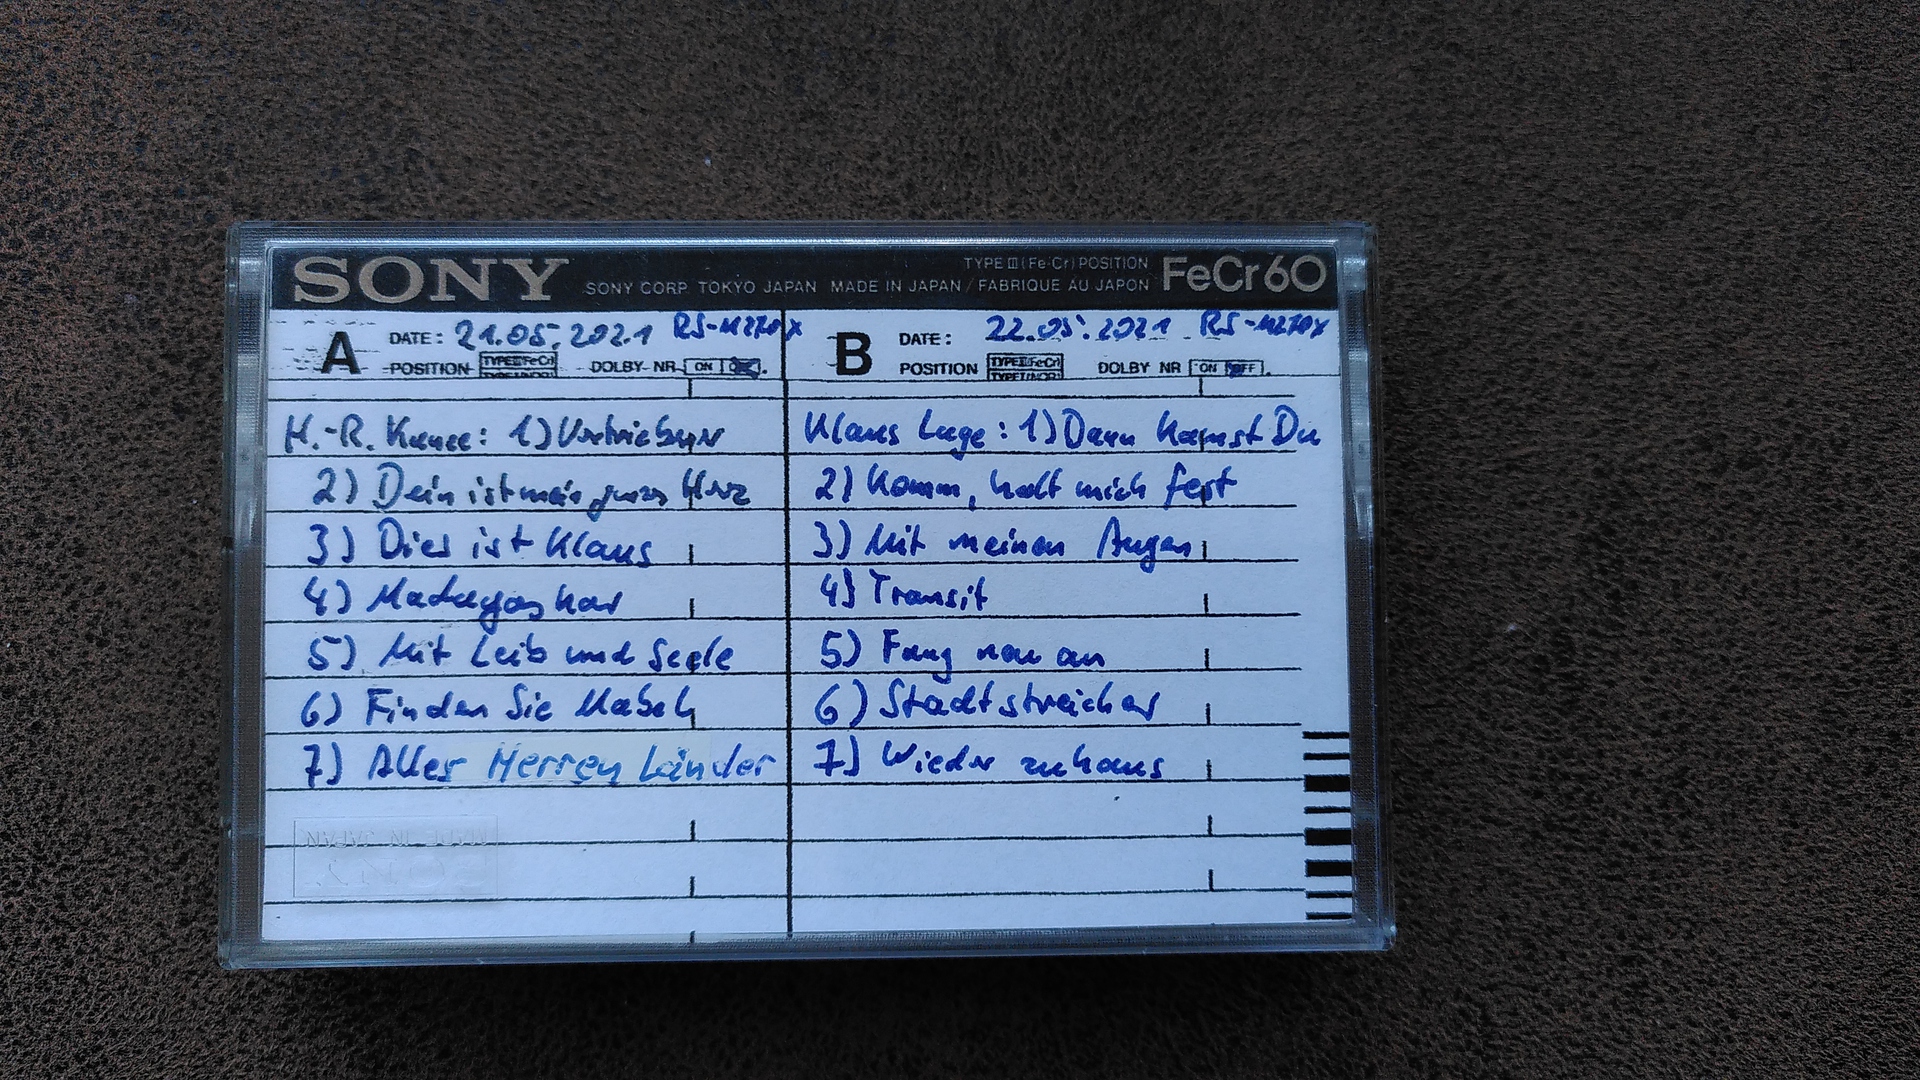 SONY
SONY CORP. TOKYO JAPAN MADE IN JAPAN / FABRIQUE AU JAPON
TYPE III (Fe-Cr) POSITION
FeCr60
A
DATE: 21.05.2021 RS-M270X
POSITION TYPE III(FeCr) TYPE I(NOR) DOLBY NR ON
H.-R. Kunze: 1) Vertriebener
2) Dein ist mein ganzes Herz
3) Dies ist Klaus
4) Madagaskar
5) Mit Leib und Seele
6) Finden Sie Mabel
7) Aller Herren Länder
MADE IN JAPAN
SONY
B
DATE: 22.05.2021 RS-M270X
POSITION TYPE III(FeCr) TYPE I(NOR) DOLBY NR ON OFF
Klaus Lage: 1) Dann kamst Du
2) Komm, halt mich fest
3) Mit meinen Augen
4) Transit
5) Fang neu an
6) Stadtstreicher
7) Wieder zuhaus